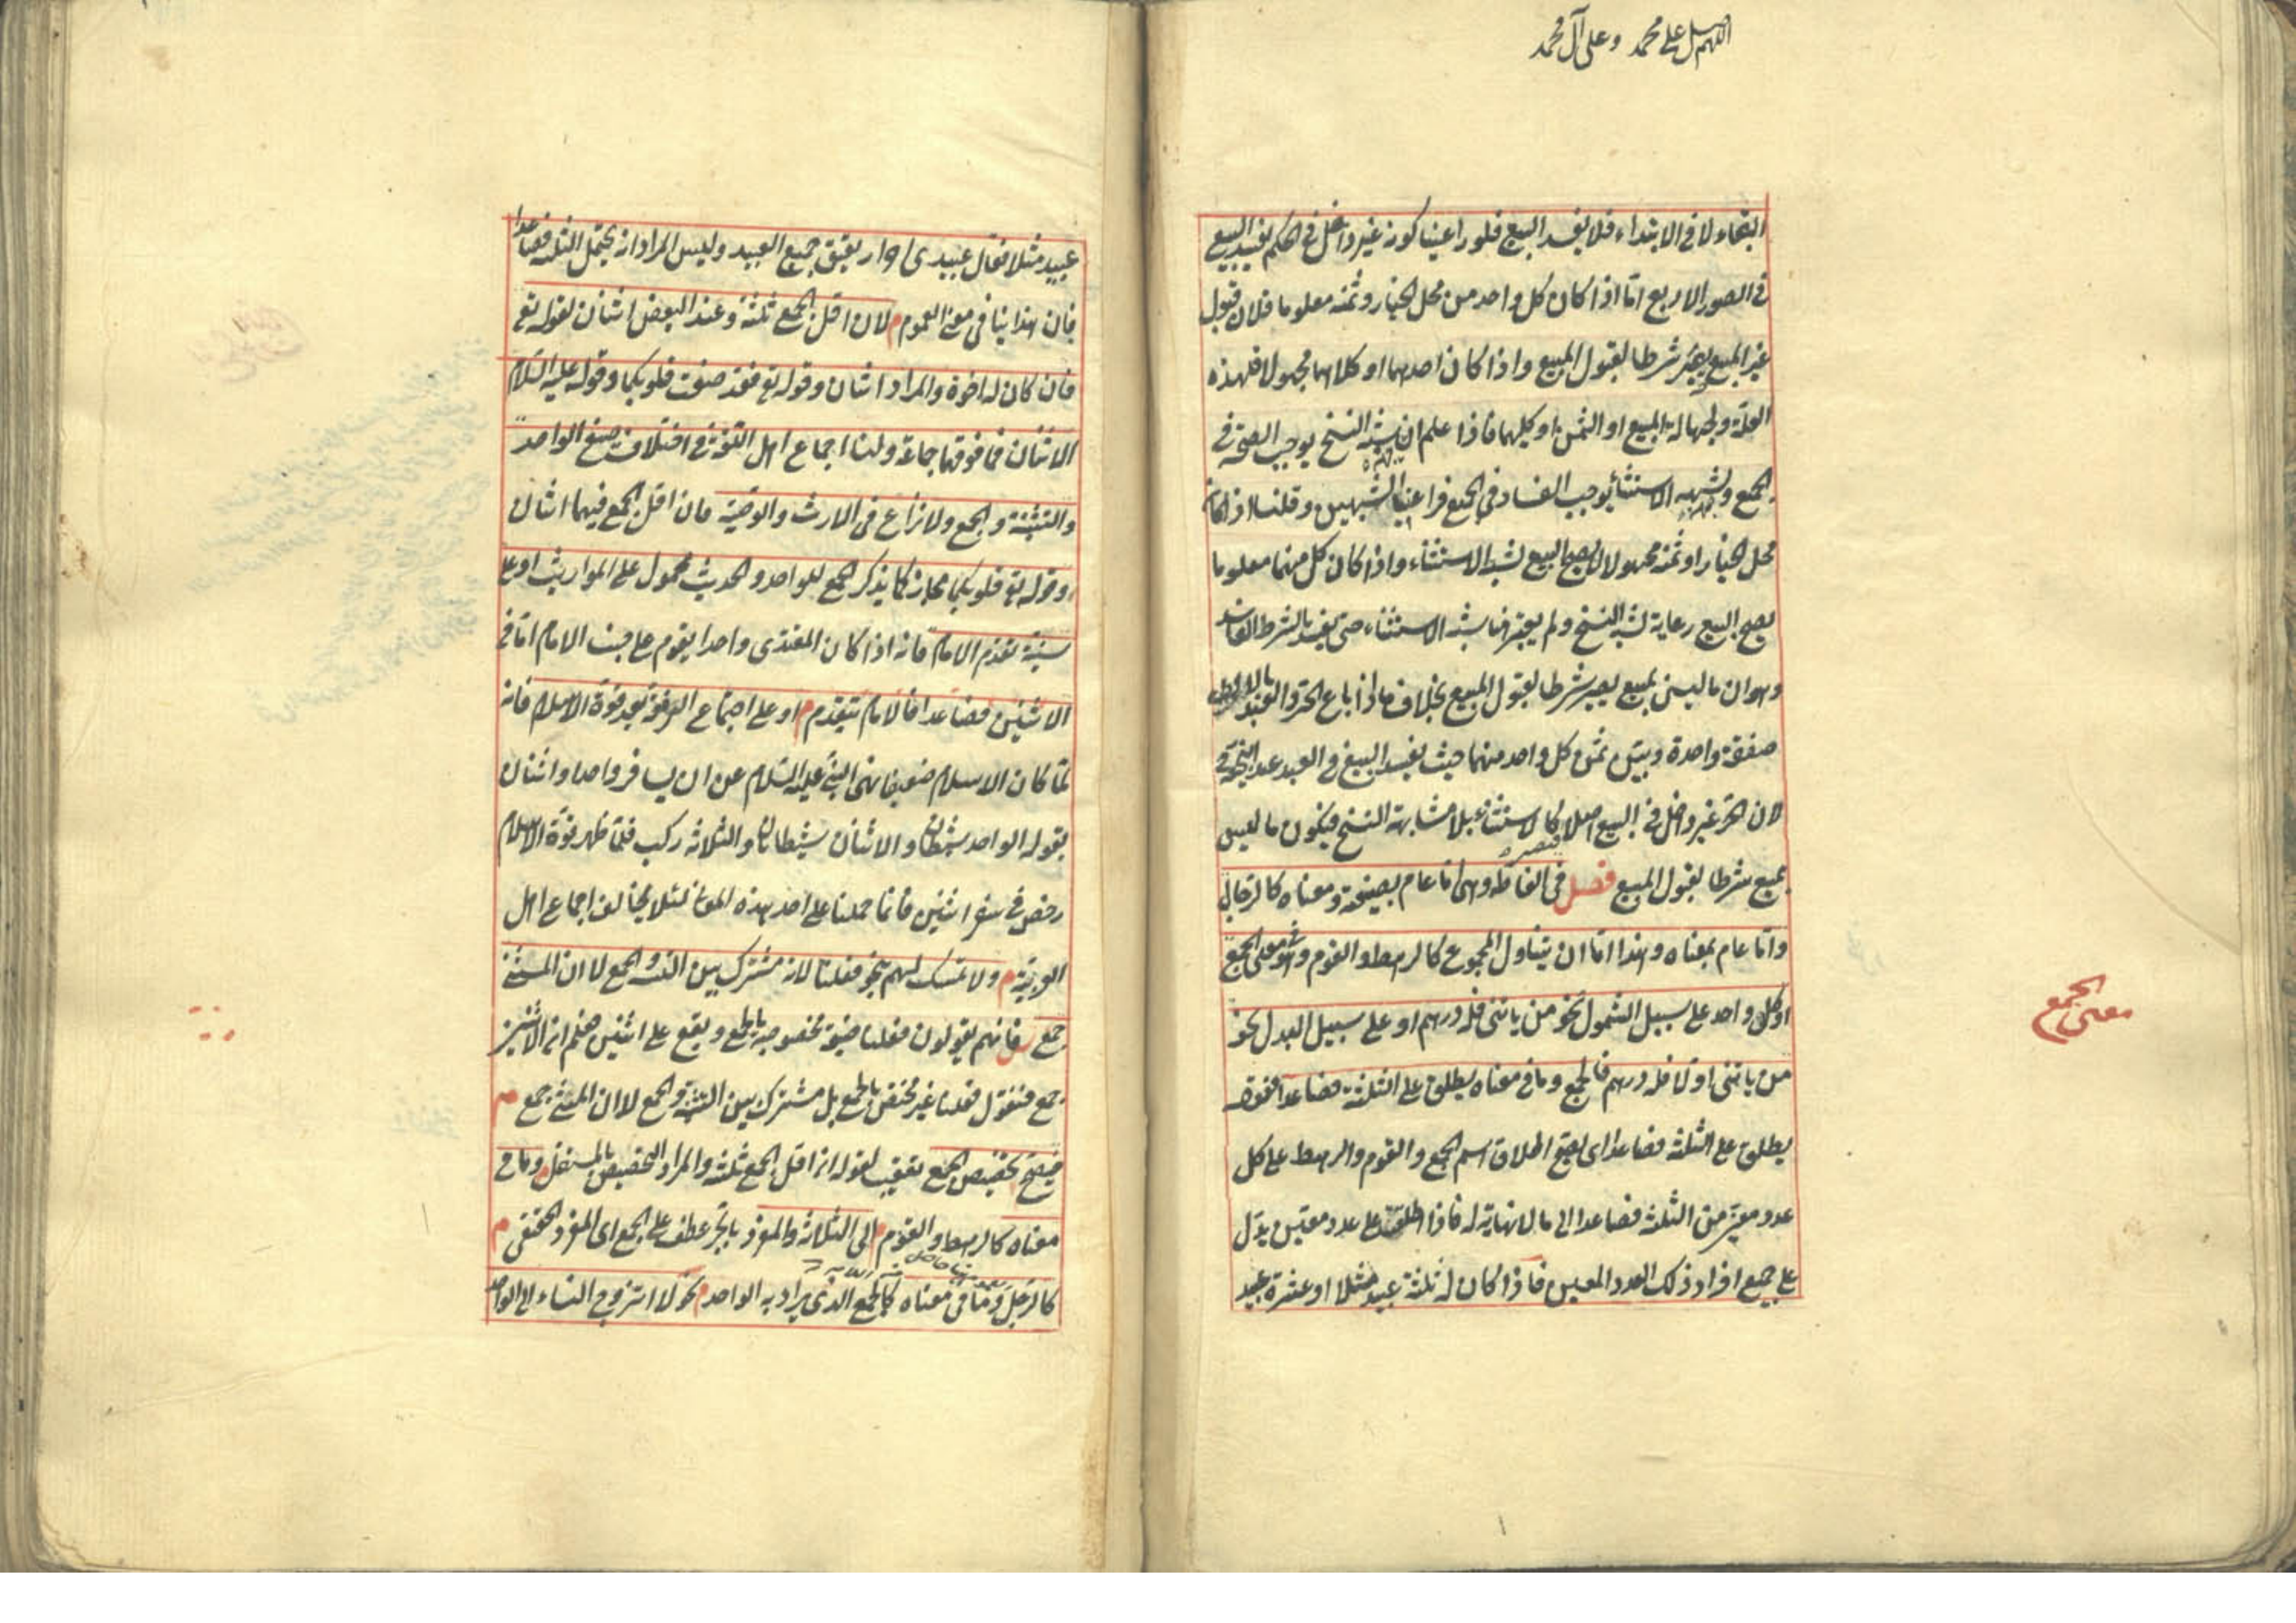 اللهم صل على محمد وعلى آل محمد
البقاء لا فى الابتداء فلا يفسد البيع فلو راعينا كونه غير داخل فى الحكم يفسد البيع
فى الصور الاربع اما اذا كان كل واحد من محل الخيار وثمنه معلوما فلان قبول
غير المبيع يصير شرطا لقبول المبيع واذا كان احدهما او كلاهما مجهولا فلهذه
العلة ولجهالة المبيع او الثمن او كليهما فاذا علم ان شبه النسخ يوجب الصحة فى
الجميع وشبه الاستثناء يوجب الفساد فى الجميع فراعينا الشبهين وقلنا اذا كان
محل الخيار او ثمنه مجهولا لا يصح البيع لشبه الاستثناء واذا كان كل منهما معلوما
يصح البيع رعاية لشبه النسخ ولم يعتبر هنا شبه الاستثناء حتى يفسد بالشرط الفاسد
وهو ان ما ليس بمبيع يصير شرطا لقبول المبيع بخلاف ما اذا باع الحر والعبد
صفقة واحدة وبين ثمن كل واحد منهما حيث يفسد البيع فى العبد عند ابى حنيفة
لان الحر غير داخل فى البيع اصلا كالاستثناء بلا مشابهة النسخ فيكون ما ليس
بمبيع شرطا لقبول المبيع فصل فى الفاظه وهى اما عام بصيغته ومعناه كالرجال
واما عام بمعناه وهذا اما ان يتناول المجموع كالرهط والقوم وهو فى معنى الجمع
او كل واحد على سبيل الشمول نحو من ياتنى فله درهم او على سبيل البدل نحو
من ياتنى اولا فله درهم فالجمع وما فى معناه يطلق على الثلثة فصاعدا فقوله
يطلق على الثلثة فصاعدا اى يصح اطلاق اسم الجمع والقوم والرهط على كل
عدد معين من الثلثة فصاعدا الى ما لا نهاية له فاذا اطلقت على عدد معين يدل
على جميع افراد ذلك العدد المعين فاذا كان له ثلثة عبيد مثلا او عشرة عبيد
معنى الجمع
عبيد مثلا فقال عبيدى احرار يعتق جميع العبيد وليس المراد انه يحتمل الثلثة فصاعدا
فان هذا ينافى معنى العموم م لان اقل الجمع ثلثة وعند البعض اثنان لقوله تع
فان كان له اخوة والمراد اثنان وقوله تع فقد صغت قلوبكما وقوله عليه السلام
الاثنان فما فوقهما جماعة ولنا اجماع اهل اللغة فى اختلاف صيغ الواحد
والتثنية والجمع ولا نزاع فى الارث والوصية فان اقل الجمع فيهما اثنان
وقوله تع قلوبكما مجاز كما يذكر الجمع للواحد والحديث محمول على المواريث او على
سنية تقدم الامام فانه اذا كان المقتدى واحدا يقوم على جنب الامام اما فى
الاثنين فصاعدا فالامام يتقدم م او على اجتماع الرفقة بعد قوة الاسلام فانه
لما كان الاسلام ضعيفا نهى النبى عليه السلام عن ان يسافر واحد او اثنان
بقوله الواحد شيطان والاثنان شيطانان والثلاثة ركب فلما ظهر قوة الاسلام
رخص فى سفر اثنين فانما حملنا على احد هذه المعانى لئلا يخالف اجماع اهل
العربية م ولا تمسك لهم بنحو فعلنا لانه مشترك بين التثنية والجمع لا ان المثنى
جمع فانهم يقولون فعلنا صيغة مخصوصة بالجمع ويقع على اثنين فعلم ان الاثنين
جمع فنقول فعلنا غير مختص بالجمع بل مشترك بين التثنية والجمع لا ان المثنى جمع م
فيصح تخصيص الجمع تعقيب لقوله ان اقل الجمع ثلثة والمراد التخصيص بالمستقل وما فى
معناه كالرهط والقوم م الى الثلاثة والمفرد بالجر عطف على الجمع اى المفرد الحقيقى م
كالرجل وما فى معناه كالجمع الذى يراد به الواحد م نحو لا اتزوج النساء الى الواحد